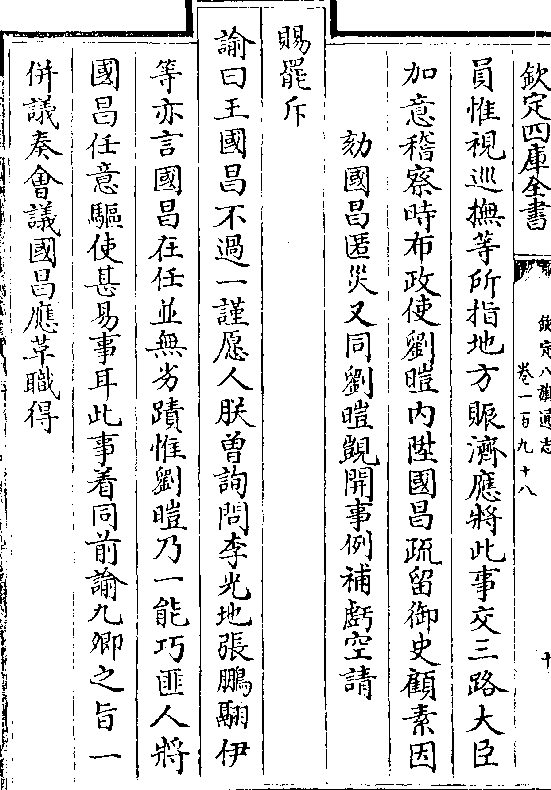 欽定四庫全書
欽定八旗通志
卷一百九十八
十
員惟視巡撫等所指地方賑濟應將此事交三路大臣
加意稽察時布政使劉暟內陞國昌疏留御史顧素因
劾國昌匿災又同劉暟覬開事例補虧空請
賜罷斥
諭曰王國昌不過一謹愿人朕曾詢問李光地張鵬翮伊
等亦言國昌在任並無劣蹟惟劉暟乃一能巧匪人將
國昌任意驅使甚易事耳此事着同前諭九卿之旨一
併議奏會議國昌應革職得